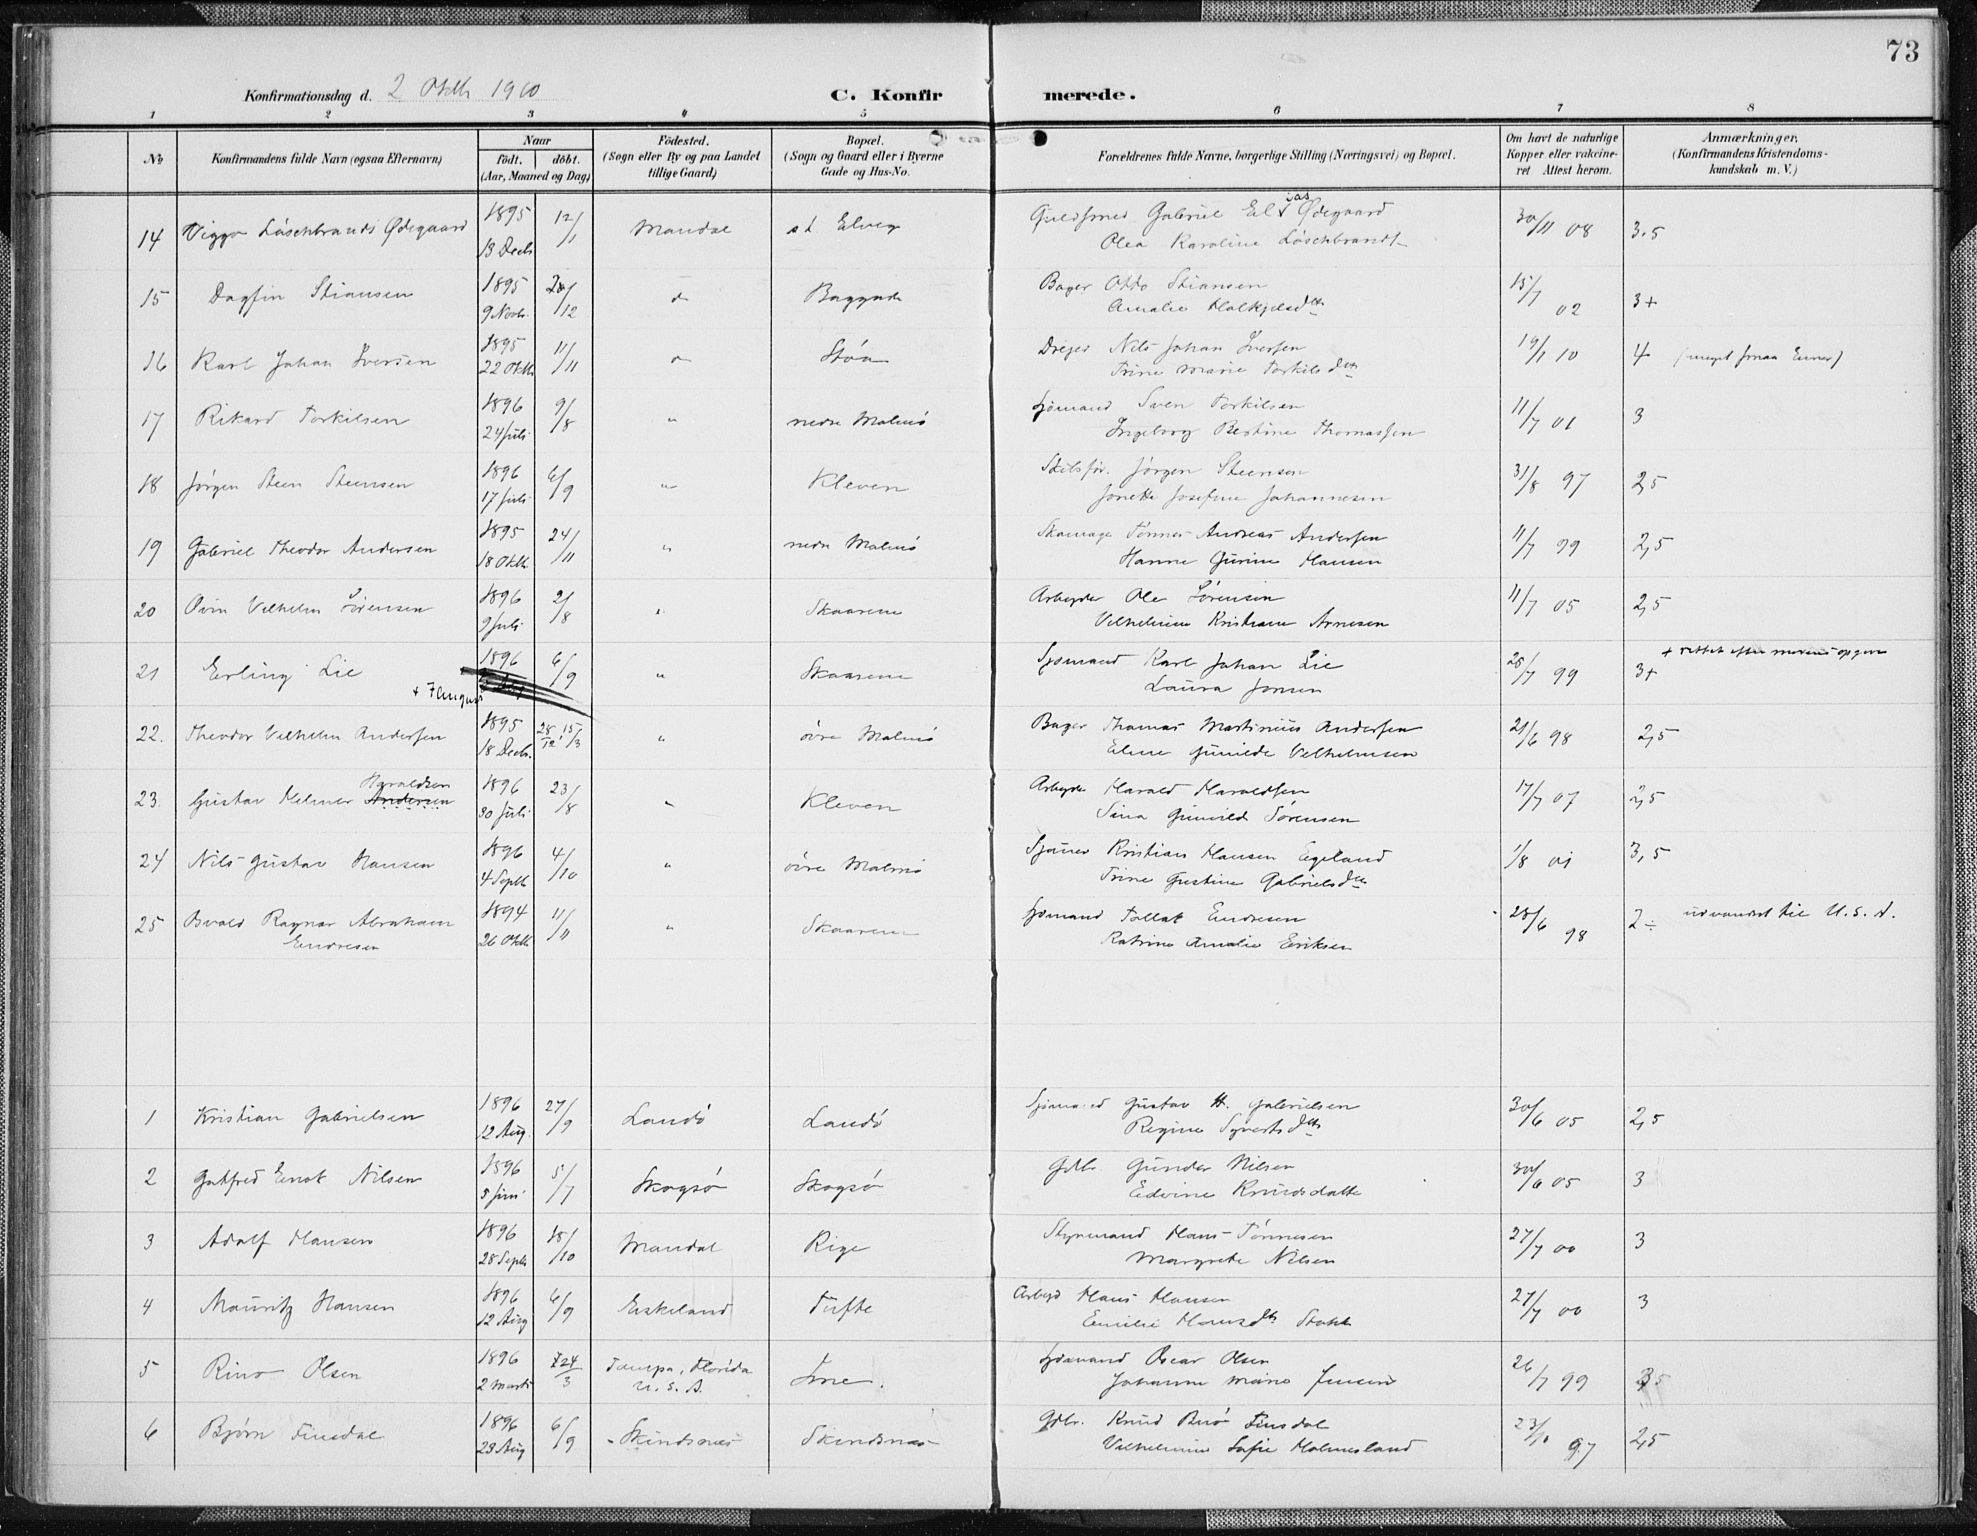 73
Konfirmationsdag d. 2 Oktb 1910
C. Konfirmerede.
1 2 3 4 5 6 7 8
No
Konfirmandens fulde Navn (ogsaa Efternavn)
Naar
født. døbt.
(Aar, Maaned og Dag)
Fødested.
(Sogn eller By og paa Landet
tillige Gaard)
Bopæl.
(Sogn og Gaard eller i Byerne
Gade og Hus-No.
Forældrenes fulde Navne, borgerlige Stilling (Næringsvei) og Bopæl.
Om havt de naturlige
Kopper eller vakcine-
ret Attest herom.
Anmærkninger.
(Konfirmandens Kristendoms-
kundskab m. V.)
14 Viggo Löschbrandt Ødegaard 1895 18 Decb 12/1 Mandal st. Elveg Guldsmed Gabriel Elias Ødegaard 30/11 08 3,5
Olea Karoline Löschbrandt
15 Dagfin Stiansen 1895 9 Novb. 26/12 do Baggade Bager Otto Stiansen 15/7 02 3+
Amalie
16 Karl Johan Iversen 1895 22 Oktb 11/11 do Støa Dreier Nils Johan Iversen 19/1 10 4
Trine Marie Torkilsdtr
17 Rikard Torkilsen 1896 24 Juli 9/8 " nedre Malmø Sjømand Sven Torkilsen 11/7 01 3
Ingeborg Bertine Thomassen
18 Jørgen Steen Steensen 1896 17 Juli 6/9 " Kleven Skibsfør. Jørgen Steensen 31/8 97 2,5
Jonette Josefine Johannesen
19 Gabriel Theodor Andersen 1895 18 Oktb. 24/11 " nedre Malmø Skomager Tønnes Andreas Andersen 11/7 99 2,5
Hanne Gurine Hansen
20 Øvin Vilhelm Sørensen 1896 9 Juli 2/8 " Skaarene Arbeyder Ole Sørensen 11/7 05 2,5
Vilhelmine Kristiane Arnesen
21 Erling Lie 1896 6/9 " Skaarene Sjømand Karl Johan Lie 28/7 99 3+ + rettet efter moderens opgave
+ 7 August
Laura Jensen
22. Theodor Vilhelm Andersen 1895 18 Decb. 28/12 15/3 " øvre Malmø Bager Thomas Martinius Andersen 21/6 98 2,5
Eline Gunilde Vilhelmsen
23. Gustav Helmer Andersen Haraldsen 1896 30 Juli 23/8 " Kleven Arbeyder Harald Haraldsen 17/7 07 2,5
Sina Gunvild Sørensen
24 Nils Gustav Hansen 1896 4 Septb 4/10 " øvre Malmø Kristian Hansen Egeland 1/8 01 3,5
Trine Gustine Gabrielsdtr
25 Osvald Ragnar Abraham 1894 26 Oktb 11/11 " Skaarene Sjømand Tallak Endresen 28/6 98 2÷ udvandret til U.S.A.
Endresen
Katrine Amalie Eriksen
1 Kristian Gabrielsen 1896 12 Aug. 27/9 Landø Landø Sjømand Gustav H. Gabrielsen 30/6 05 2,5
Regine Syvertsdtr
2 Gotfred Enok Nilsen 1896 5 Juni 5/7 Skogsø Skogsø Gdbr. Gunder Nilsen 30/6 05 3
Edvine Knudsdatter
3 Adolf Hansen 1896 28 Septb 18/10 Mandal Rige Styrmand Hans Tønnesen 27/7 00 3
Margrete Nilsen
4 Mauritz Hansen 1896 12 Aug 6/9 Eskeland Tufte Arbeyd Hans Hansen 27/7 00 3
Emilie Hansdtr
5 Rino Olsen 1896 2 Marts 24/3 Tampa, Florida Ime. Sjømand Oscar Olsen 26/7 99
U.S.A.
Johanne Marie Jensen
6 Bjørn Finsdal 1896 28 Aug 6/9 Skindsnæs Skindsnæs Gdbr. Knud Finsdal 23/10 97 2,5
Vilhelmine Sofie Holmesland